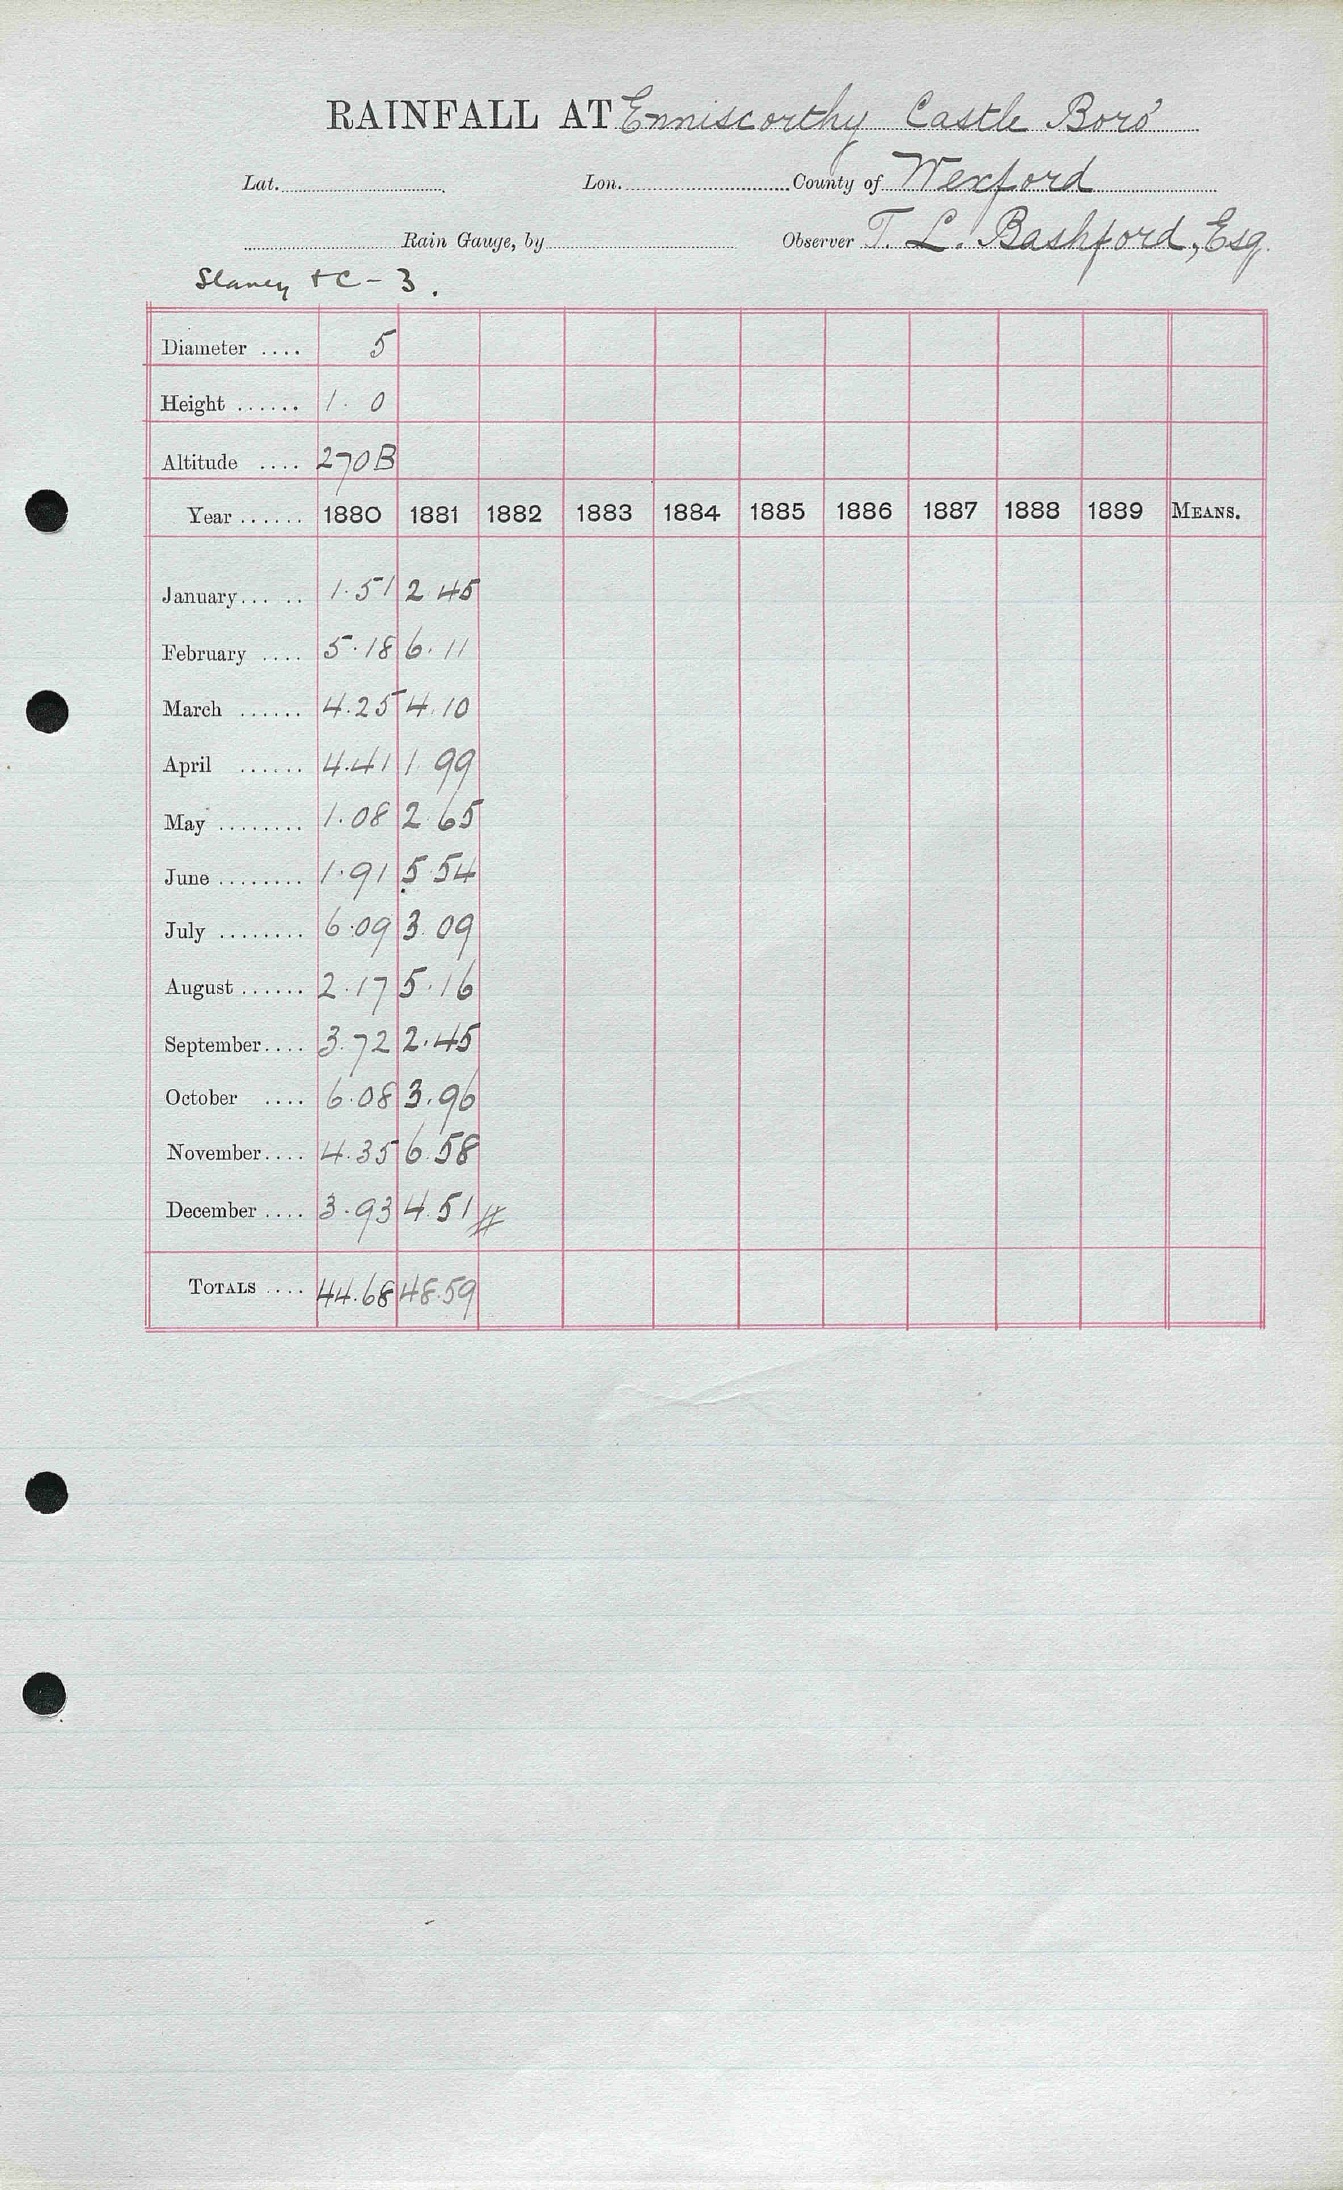 RAINFALL AT Enniscorthy Castle Boro'
Lat. Lon. County of Wexford
Rain Gauge, by Observer T. L. Bashford, Esq.
Slaney &C - 3.
Diameter .... 5
Height ...... 1. 0
Altitude .... 270B
Year ...... 1880 1881 1882 1883 1884 1885 1886 1887 1888 1889 MEANS.
January... .. 1.51 2 45
February .... 5.18 6.11
March ...... 4.25 4.10
April ...... 4.41 1 99
May ........ 1.08 2.65
June ........ 1.91 5 54
July ........ 6.09 3.09
August ...... 2.17 5.16
September.... 3.72 2.45
October .... 6.08 3.96
November.... 4.35 6.58
December .... 3.93 4.51 #
TOTALS .... 44.68 48.59